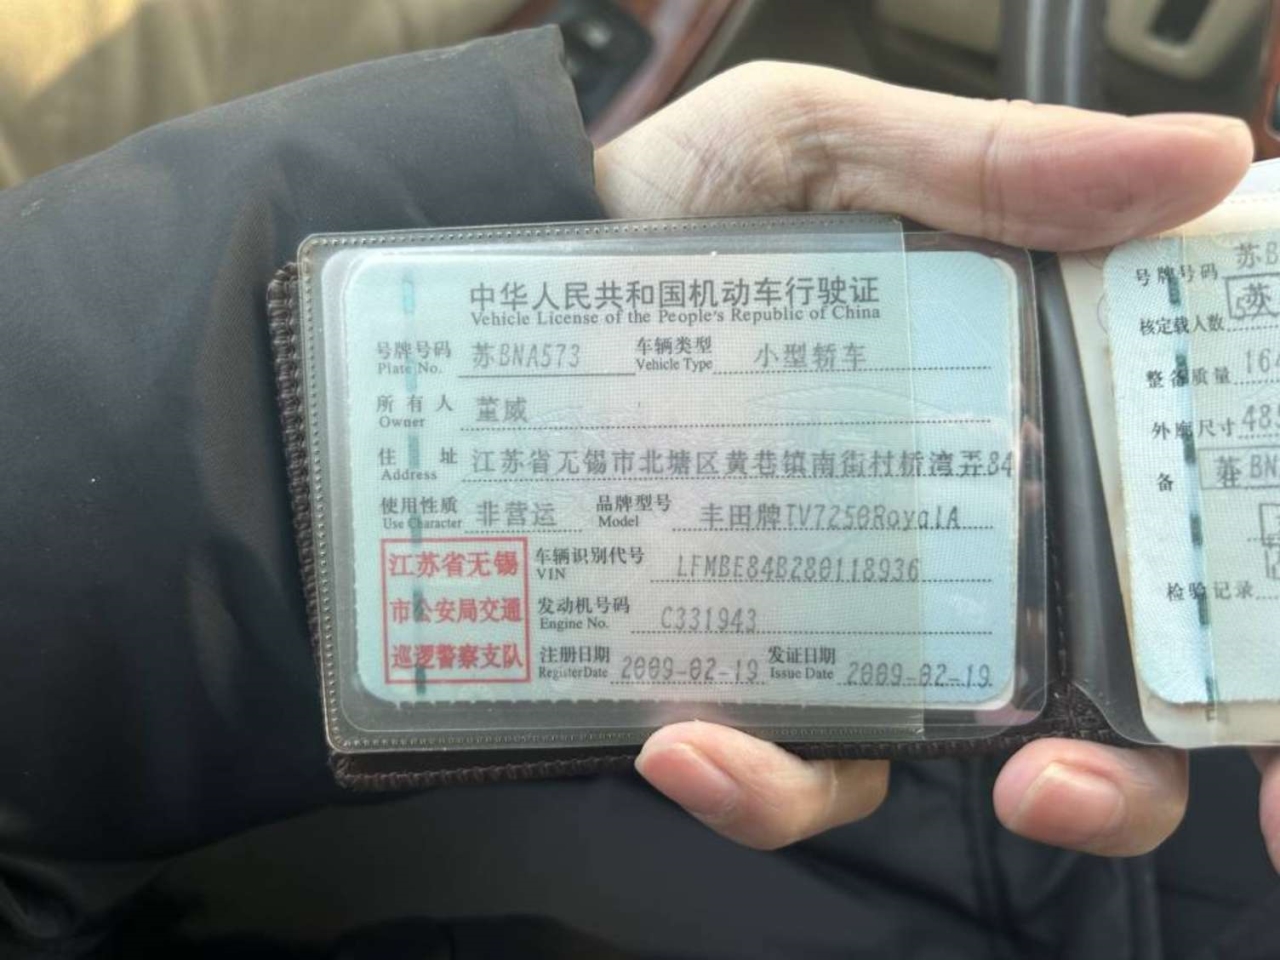 中华人民共和国机动车行驶证
Vehicle License of the People's Republic of China
号牌号码 苏BNA573 车辆类型 小型轿车
Plate No. Vehicle Type
所有人 董威
Owner
住址 江苏省无锡市北塘区黄巷镇南街村桥湾弄84
Address
使用性质 非营运 品牌型号 丰田牌TV7250RoyalA
Use Character Model
江苏省无锡
市公安局交通
巡逻警察支队
车辆识别代号 LFMBE84B280118936
VIN
发动机号码 C331943
Engine No.
注册日期 2009-02-19 发证日期 2009-02-19
Register Date Issue Date
号牌号码 苏B
苏
核定载人数
整备质量 16
外廓尺寸 48
备 苏BN
检验记录